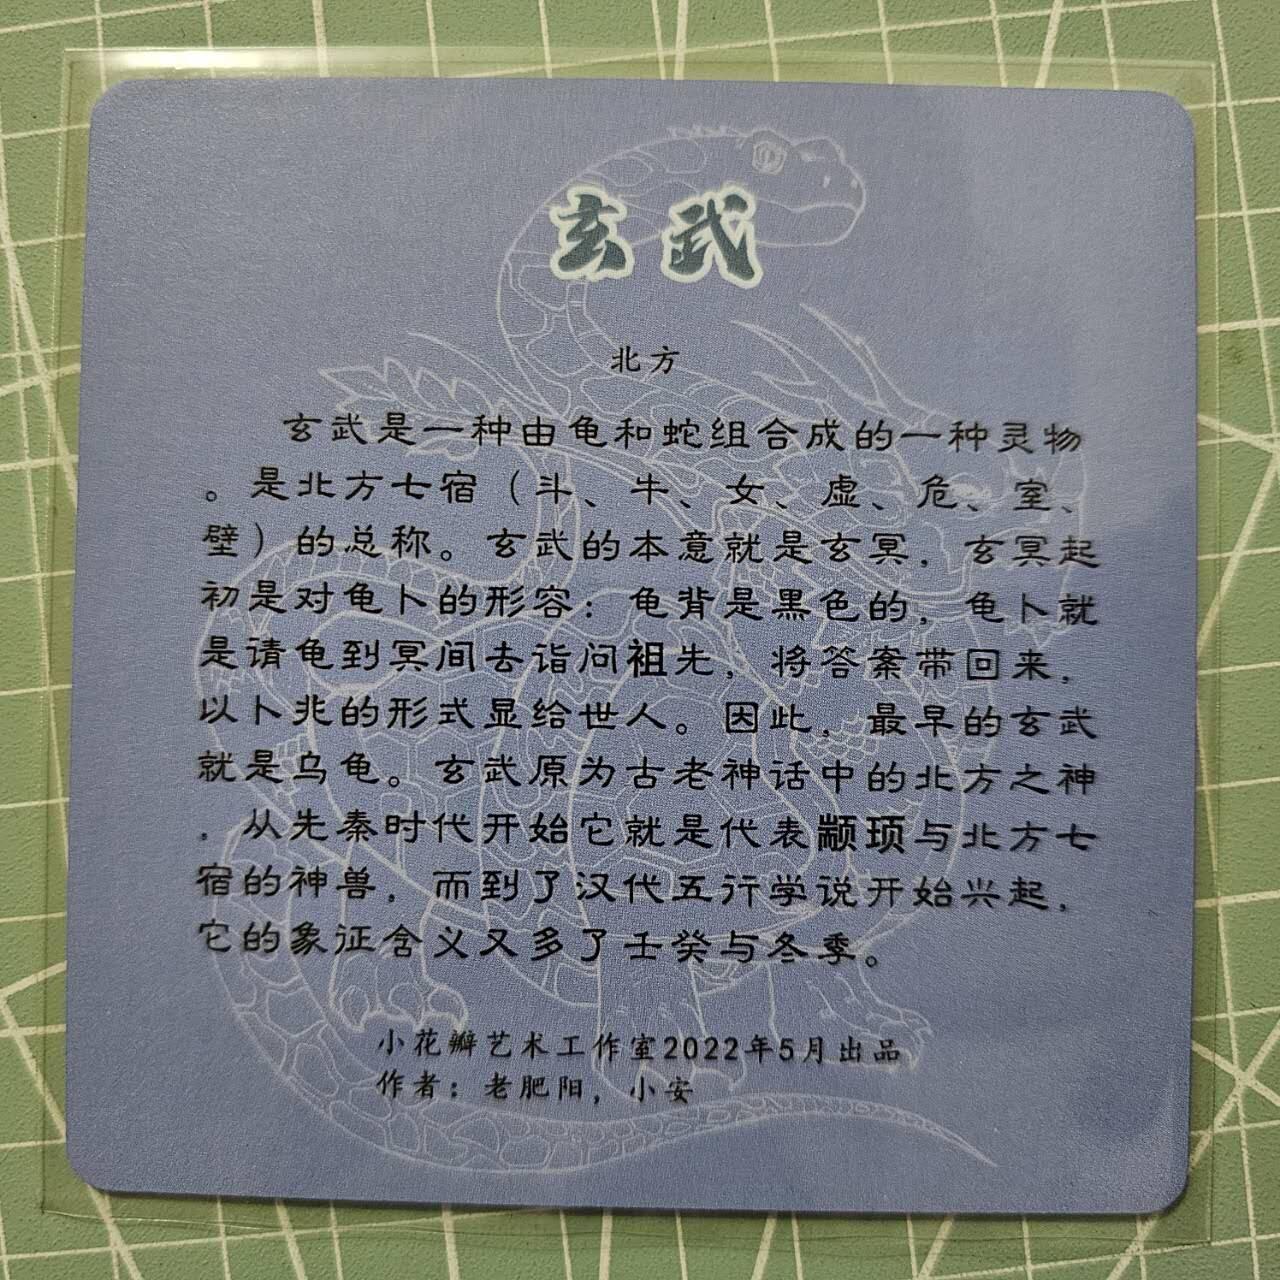 玄武
北方
玄武是一种由龟和蛇组合成的一种灵物
。是北方七宿（斗、牛、女、虚、危、室、
壁）的总称。玄武的本意就是玄冥，玄冥起
初是对龟卜的形容：龟背是黑色的，龟卜就
是请龟到冥间去诣问祖先，将答案带回来，
以卜兆的形式显给世人。因此，最早的玄武
就是乌龟。玄武原为古老神话中的北方之神
，从先秦时代开始它就是代表颛顼与北方七
宿的神兽，而到了汉代五行学说开始兴起，
它的象征含义又多了壬癸与冬季。
小花瓣艺术工作室2022年5月出品
作者：老肥阳，小安